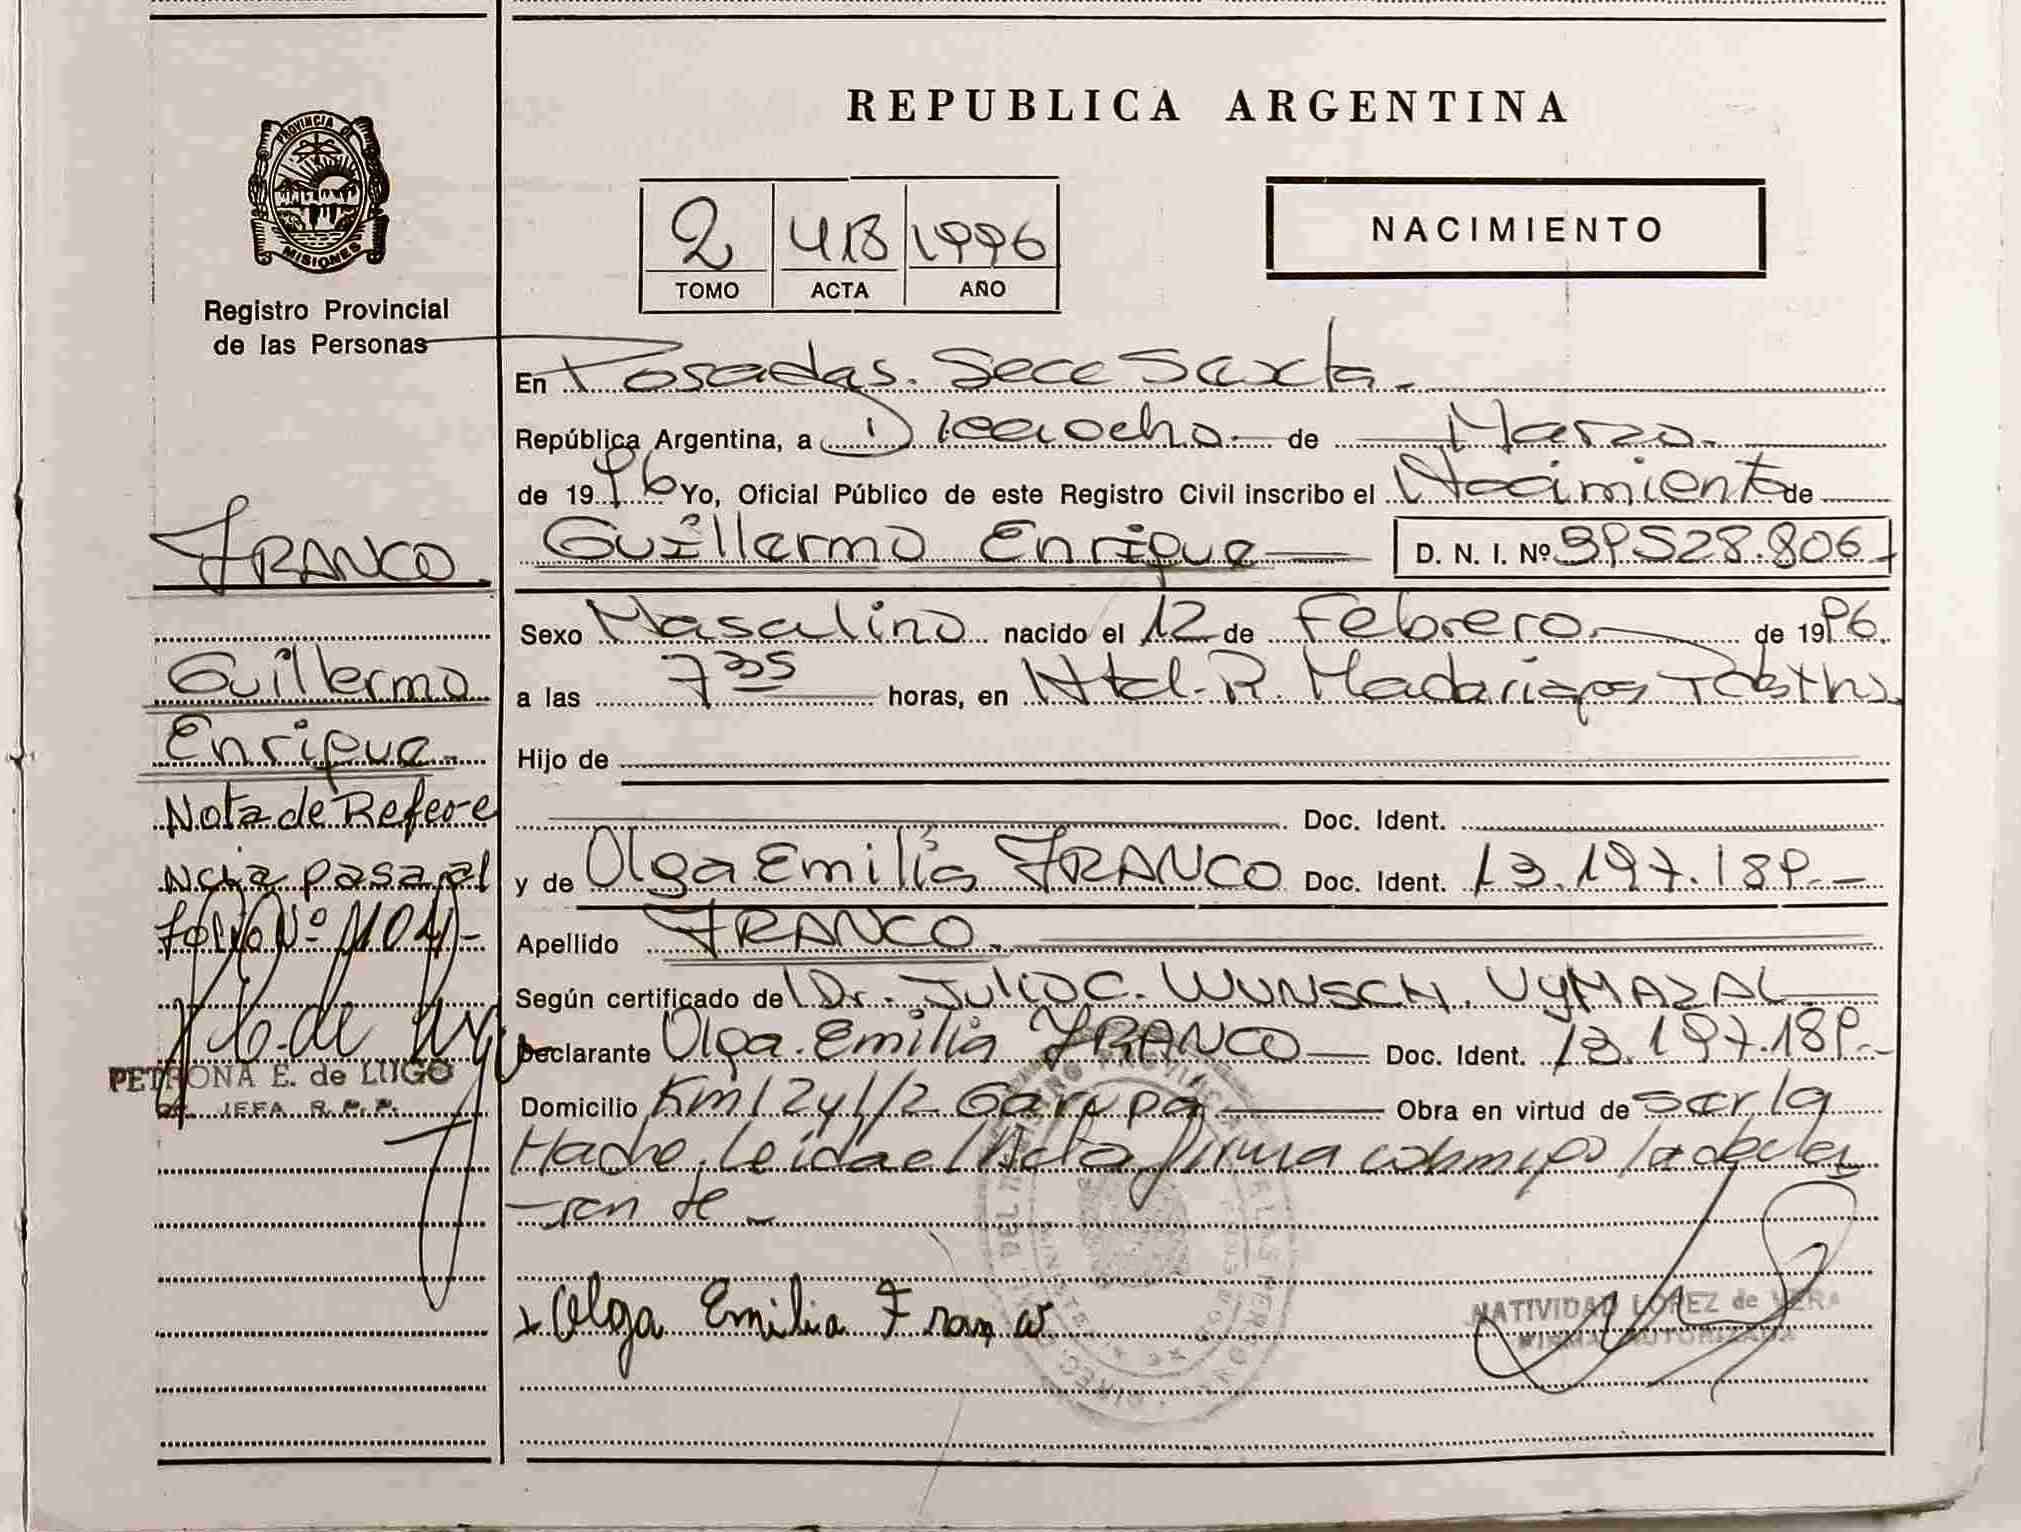 PROVINCIA DE
MISIONES
Registro Provincial
de las Personas
FRANCO
Guillermo
Enrique.
Nota de Refere
ncia pasa al
folio Nº
PETRONA E. de LUGO
JEFA R.P.P.
REPUBLICA ARGENTINA
2 418 1996
TOMO ACTA AÑO
NACIMIENTO
En Posadas. Secc Sexta.
República Argentina, a Dieciocho de Marzo
de 1996 Yo, Oficial Público de este Registro Civil inscribo el Nacimiento de
Guillermo Enrique D. N. I. Nº 39.528.806
Sexo Masculino nacido el 12 de Febrero de 1996.
a las 7 35 horas, en R. Madariaga
Hijo de
Doc. Ident.
y de Olga Emilia FRANCO Doc. Ident. 13.197.189.-
Apellido FRANCO.
Según certificado de Dr. Julio C. WUNSCH. VYMAZAL
Declarante Olga Emilia FRANCO Doc. Ident. 13.197.189.-
Domicilio Km 12 y 1/2 Garupá Obra en virtud de ser la
Madre. Leida el Acta firma conmigo la decla
rante
Olga Emilia Franco
NATIVIDAD LOPEZ de VERA
FIRMA AUTORIZADA